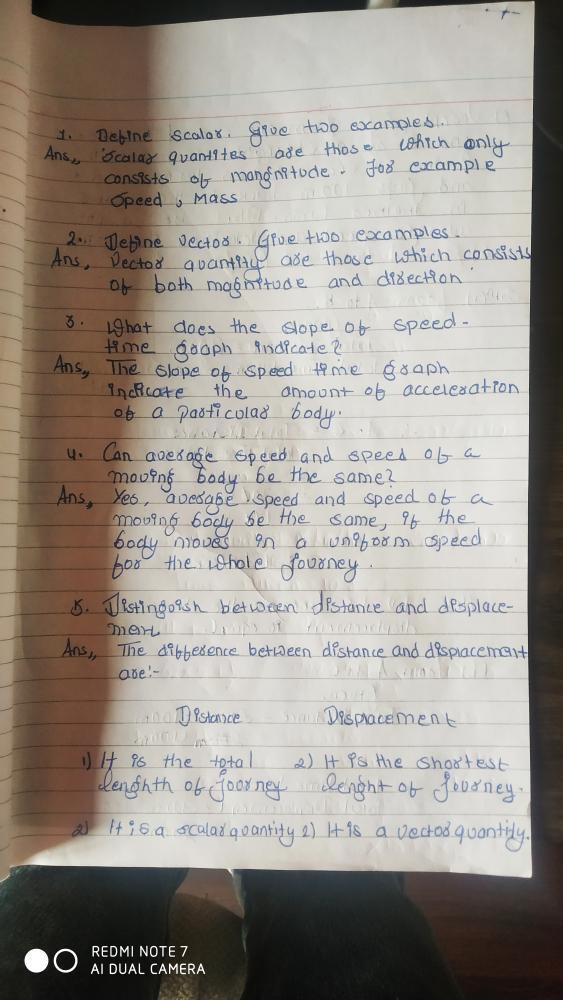 1. Define scalar. Give two examples.
Ans,, Scalar quantites are those which only
consists of mangnitude. For example
Speed, Mass
2. Define vector. Give two examples.
Ans, Vector quantity are those which consists
of both magnitude and direction
3. What does the slope of speed-
time graph indicate?
Ans,, The slope of speed time graph
indicate the amount of acceleration
of a particular body.
4. Can average speed and speed of a
moving body be the same?
Ans, Yes, average speed and speed of a
moving body be the same, if the
body moves in a uniform speed
for the whole journey.
5. Distinguish between distance and displace-
ment
Ans,, The difference between distance and displacement
are:-
Distance Displacement
1) It is the total 2) It is the shortest
lenghth of joorney lenght of journey.
2) It is a scalar quantity 2) It is a vector quantity.
REDMI NOTE 7
AI DUAL CAMERA